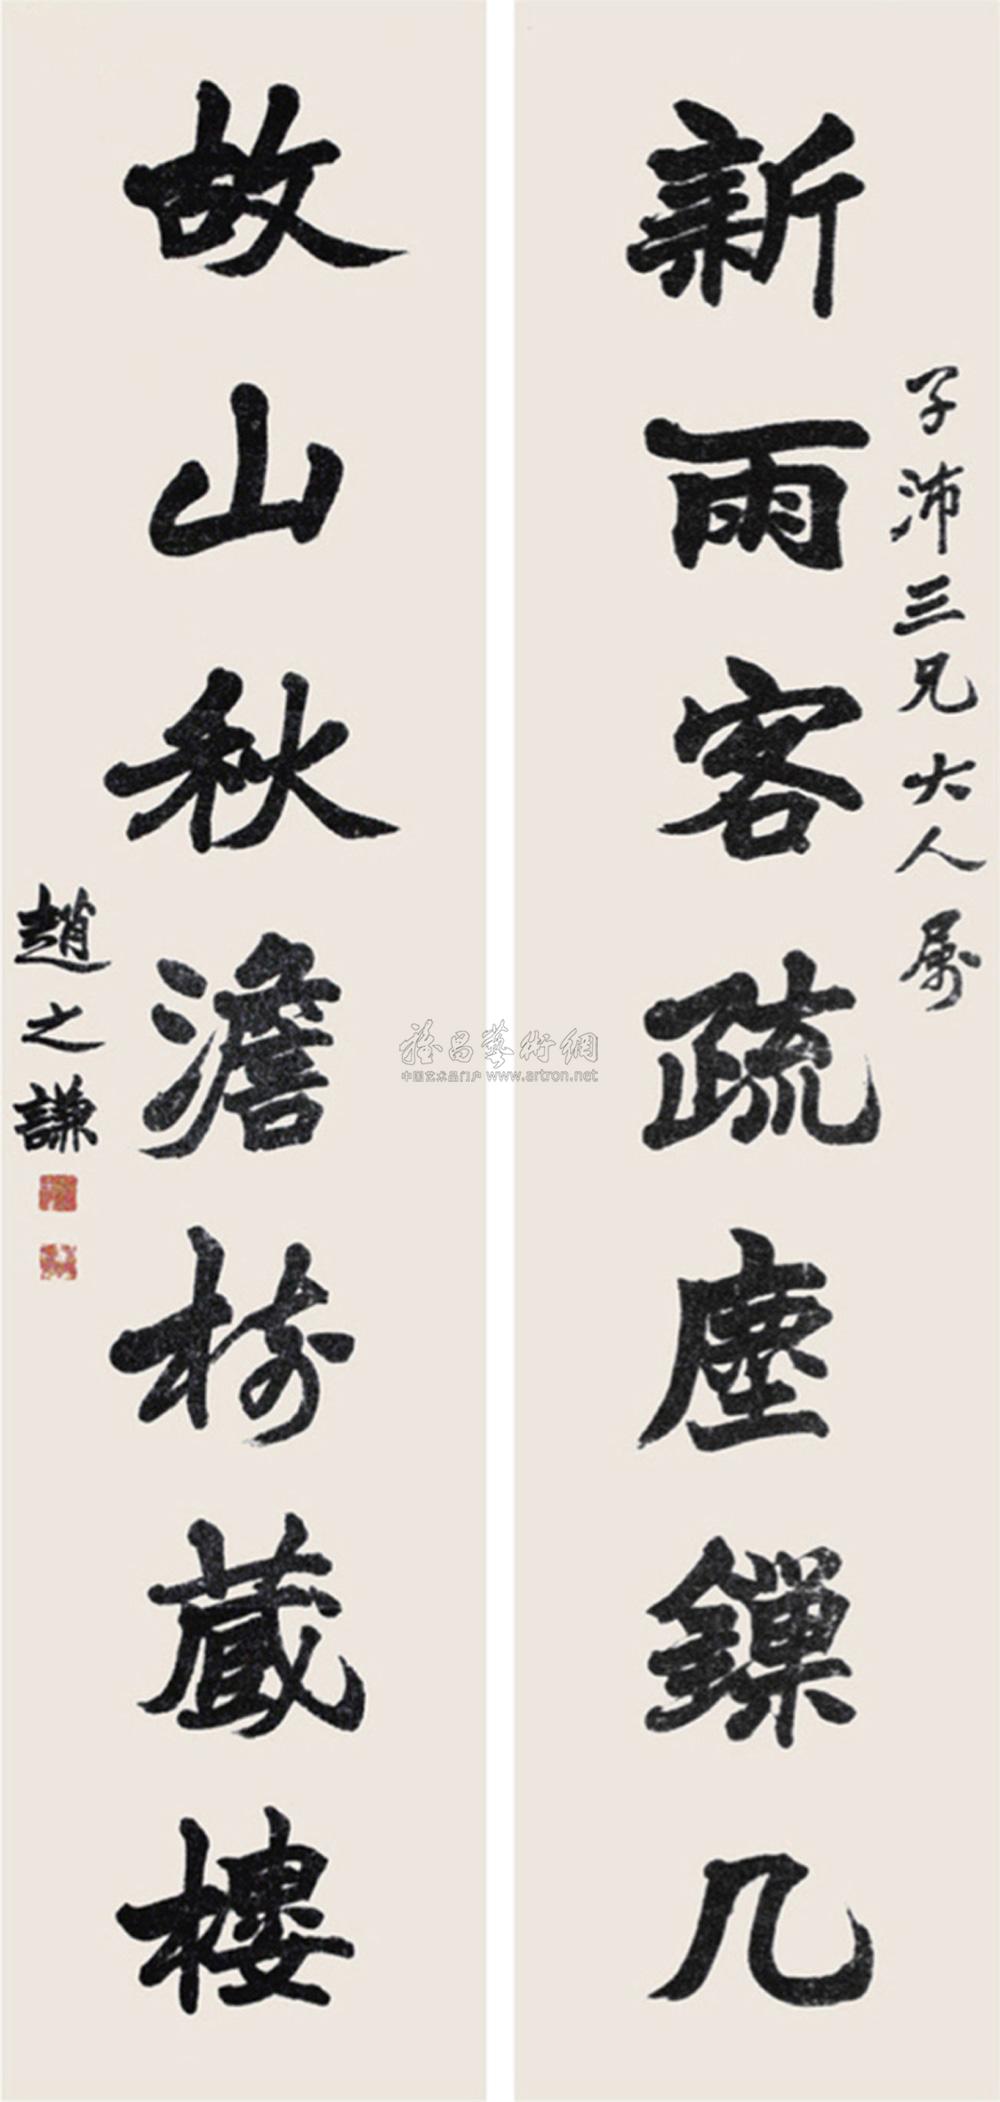 子沛三兄大人属
新雨客疏塵鏁几
故山秋澹樹藏樓
趙之謙
雅昌藝術網
中国艺术品门户 www.artron.net